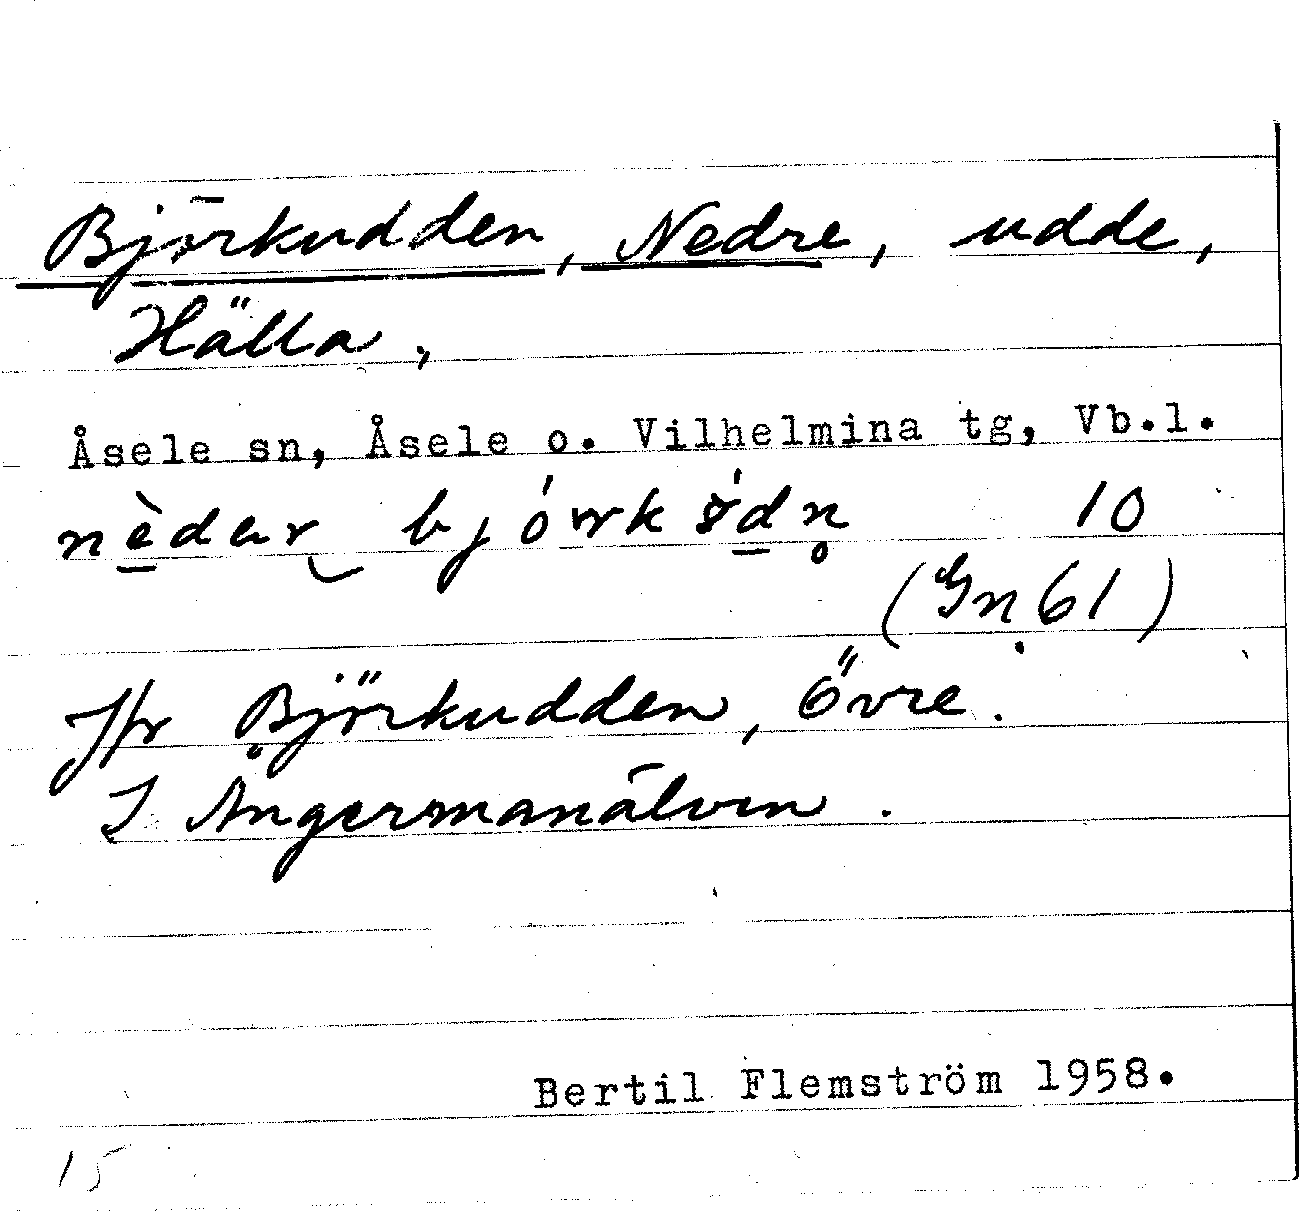 Björkudden, Nedre, udde,
Hälla,
Åsele sn, Åsele o. Vilhelmina tg, Vb.l.
10
(Gn 61)
Jfr Björkudden, Övre.
I Ångermanälven.
Bertil Flemström 1958.
15